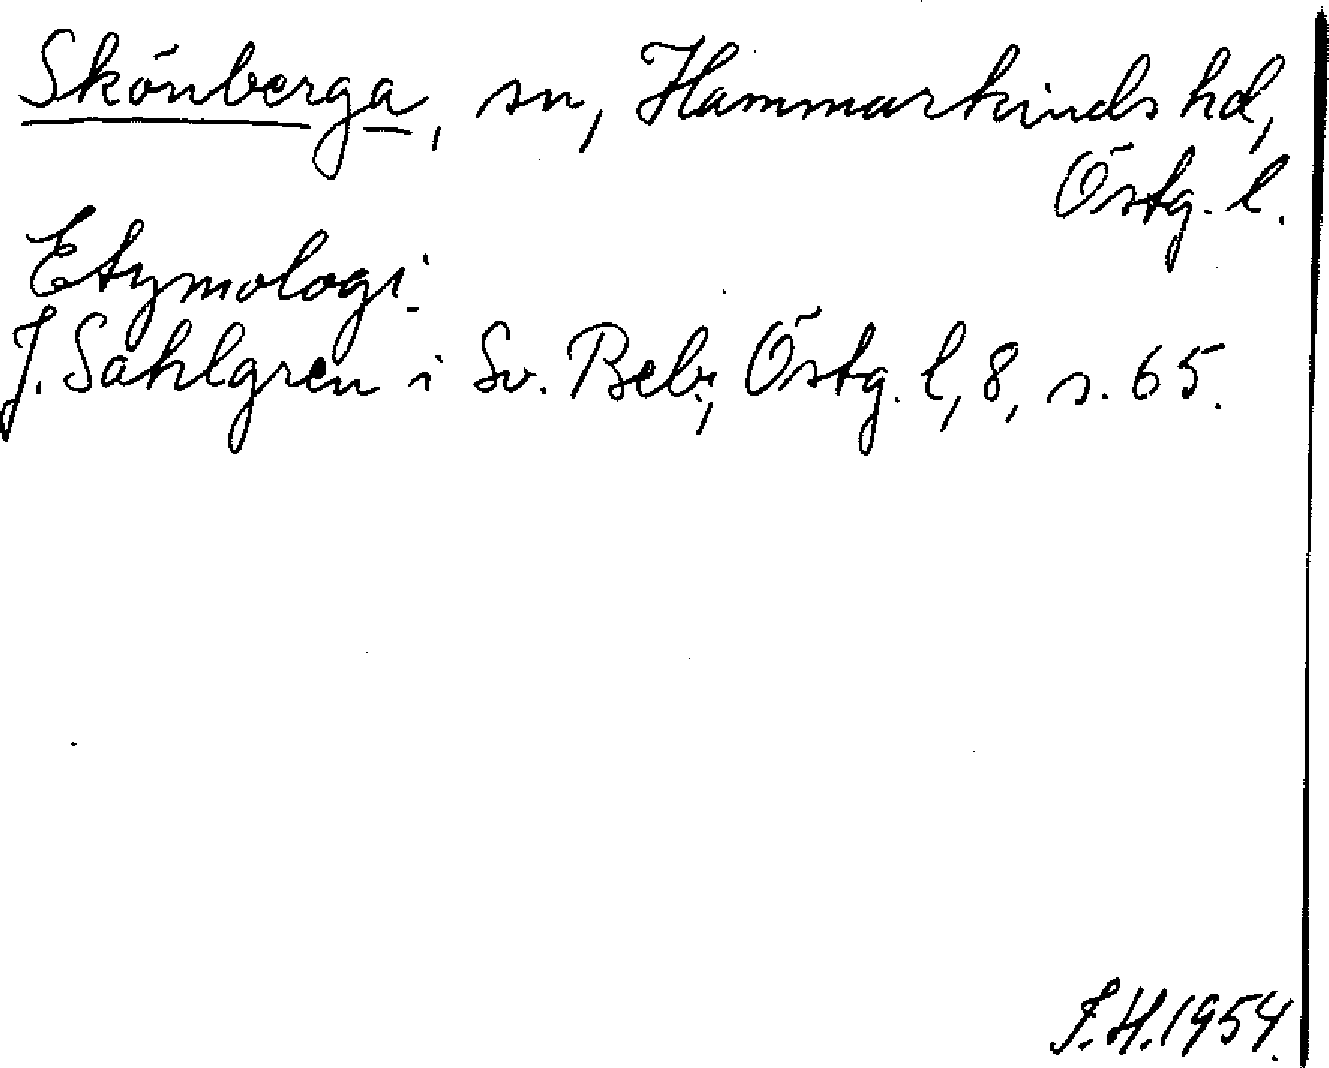 Skönberga, sn, Hammarkinds hd,
Östg. l.
Etymologi.
J. Sahlgren i Sv. Beb., Östg. l, 8, s. 65.
F.H.1954.